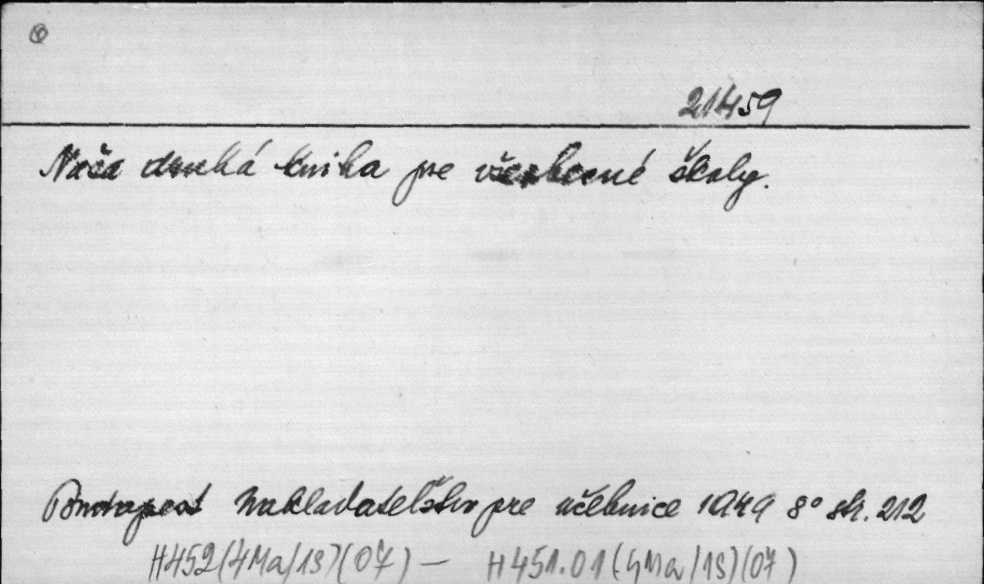 21459
Naša druhá kniha pre všeobecné školy.
Budapest Nakladateľstvo pre učebnice 1949 8° str. 212
H452(4Ma/1s)(07) — H451.01(4Ma/1s)(07)